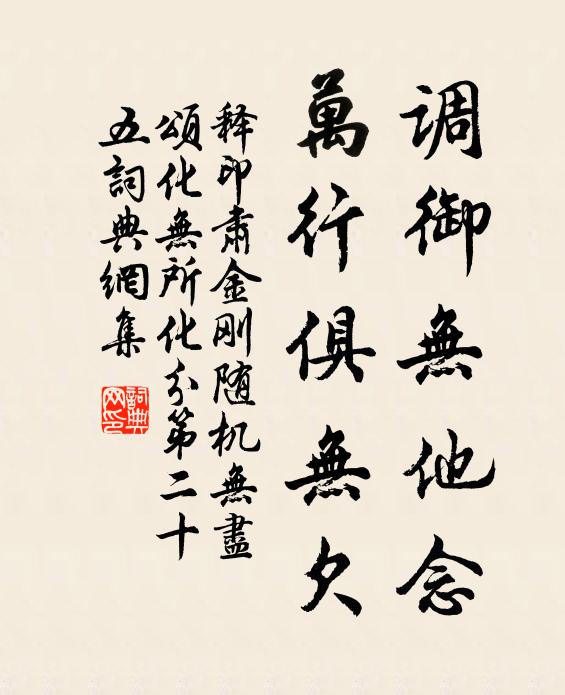 调御無他念
萬行俱無欠
释印肅金刚随机無盡
頌化無所化分第二十
五詞典網集
詞典网印